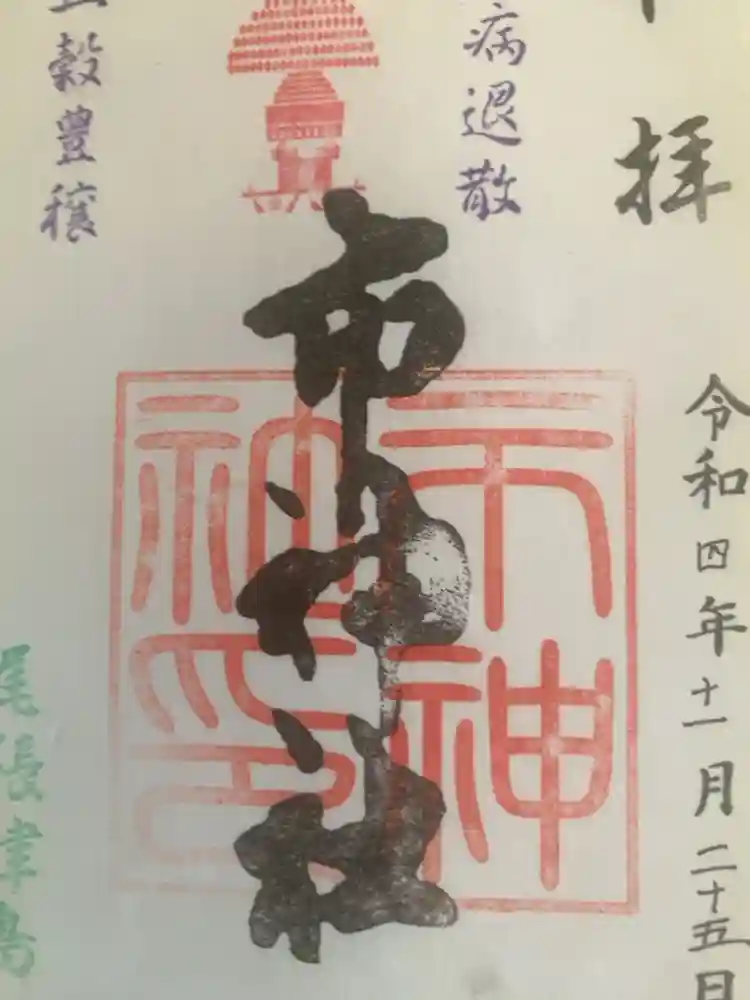 拝
令和四年十一月二十五日
病退散
市神社
穀豊穣
尾張津島